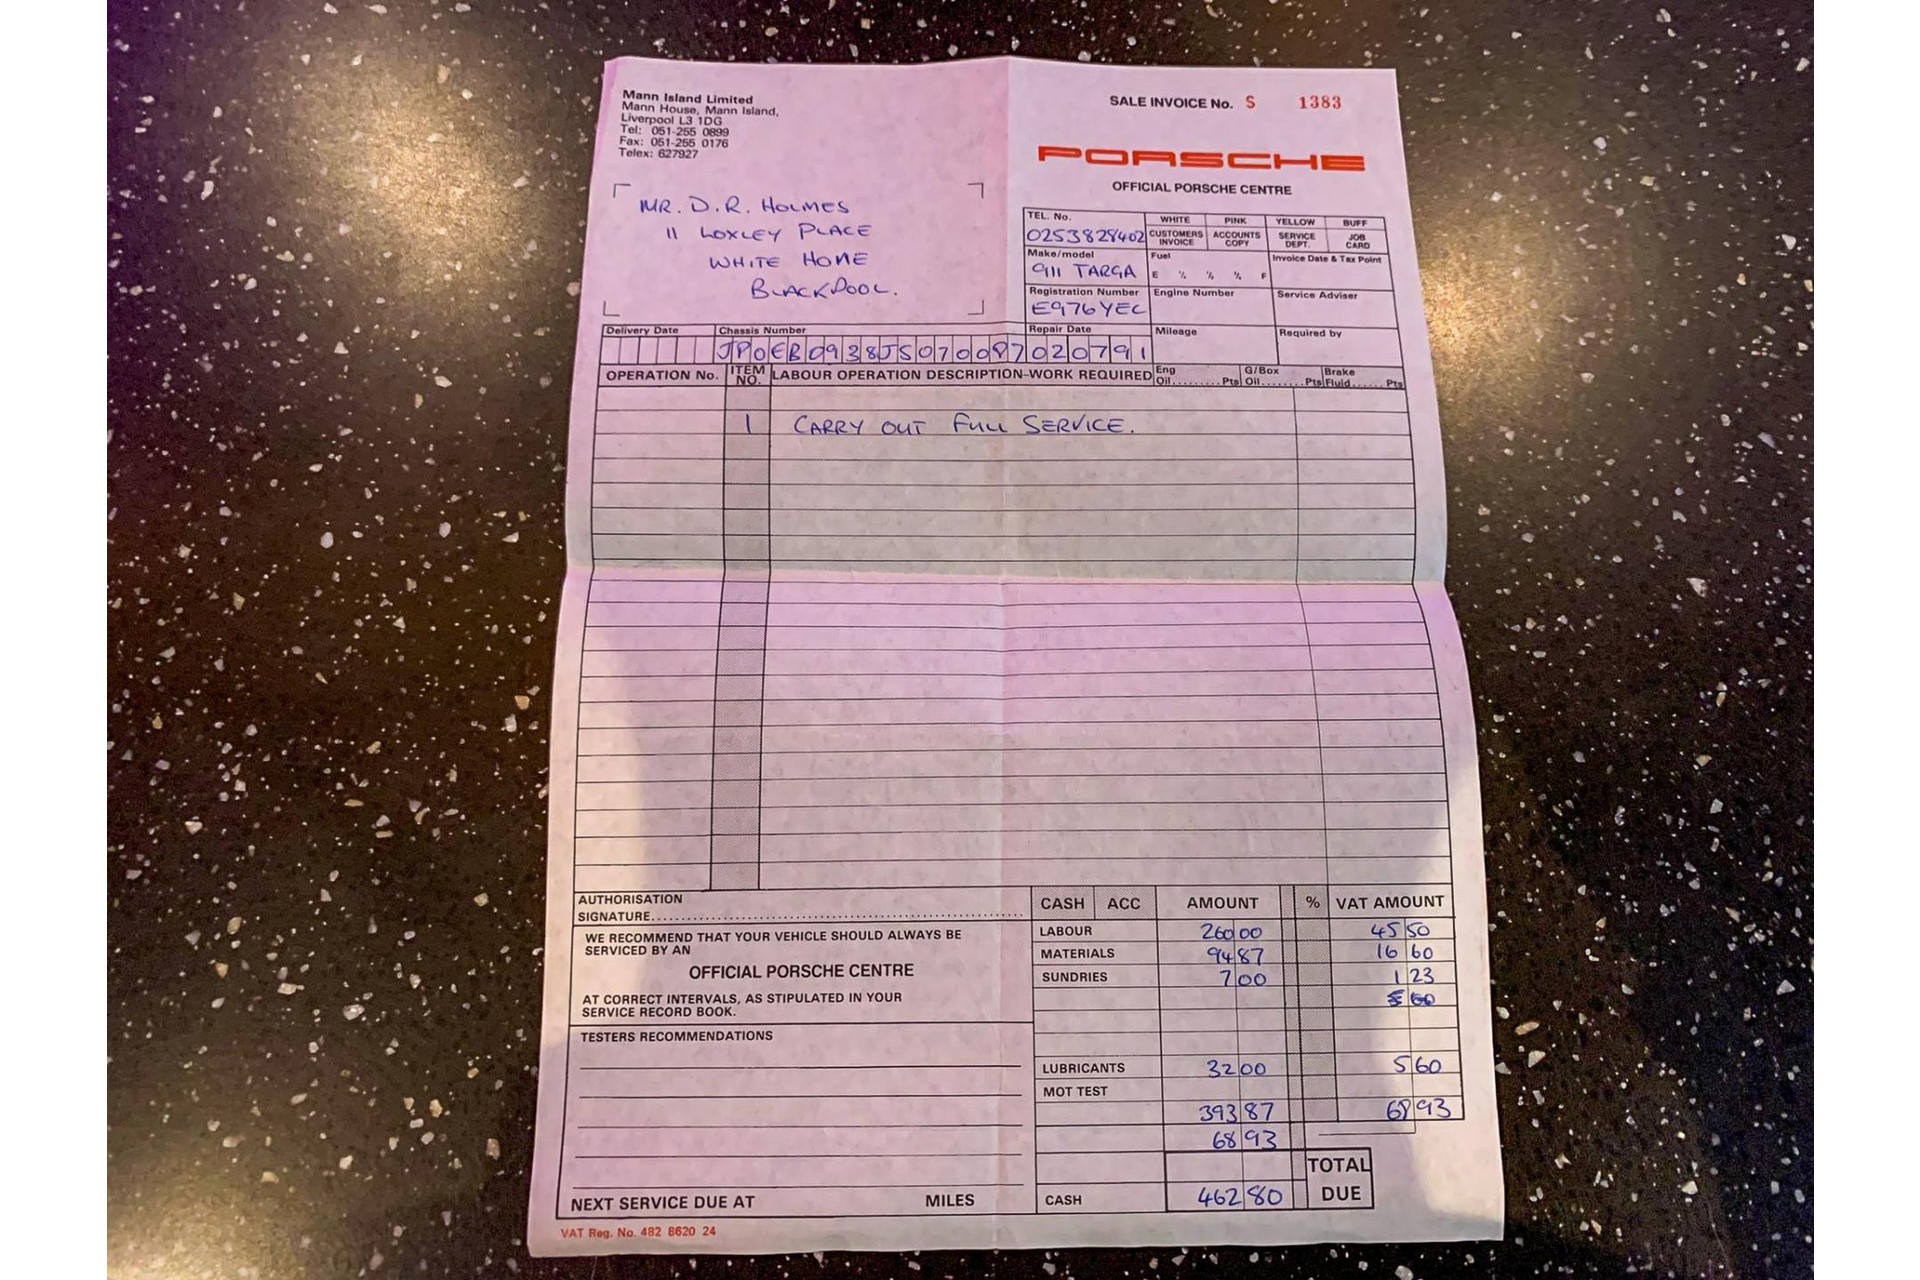 Mann Island Limited
Mann House, Mann Island,
Liverpool L3 1DG
Tel: 051-255 0899
Fax: 051-255 0176
Telex: 627927
SALE INVOICE No. S 1383
PORSCHE
OFFICIAL PORSCHE CENTRE
MR. D.R. HOLMES
11 LOXLEY PLACE
WHITE HOME
BLACKPOOL.
TEL. No.
0253828402
WHITE PINK YELLOW BUFF
CUSTOMERS INVOICE ACCOUNTS COPY SERVICE DEPT. JOB CARD
Make/model
911 TARGA
Fuel
E ¼ ½ ¾ F
Invoice Date & Tax Point
Registration Number
E976YEC
Engine Number
Service Adviser
Delivery Date Chassis Number Repair Date Mileage Required by
JP0EB0938JS070087 020791
OPERATION No. ITEM NO. LABOUR OPERATION DESCRIPTION-WORK REQUIRED Eng Oil........Pts G/Box Oil........Pts Brake Fluid......Pts
1 CARRY OUT FULL SERVICE.
AUTHORISATION
SIGNATURE
CASH ACC AMOUNT % VAT AMOUNT
LABOUR 260 00 45 50
MATERIALS 94 87 16 60
SUNDRIES 7 00 1 23
LUBRICANTS 32 00 5 60
MOT TEST
393 87 68 93
68 93
TOTAL DUE
CASH 462 80
WE RECOMMEND THAT YOUR VEHICLE SHOULD ALWAYS BE
SERVICED BY AN
OFFICIAL PORSCHE CENTRE
AT CORRECT INTERVALS, AS STIPULATED IN YOUR
SERVICE RECORD BOOK.
TESTERS RECOMMENDATIONS
NEXT SERVICE DUE AT MILES
VAT Reg. No. 482 8620 24